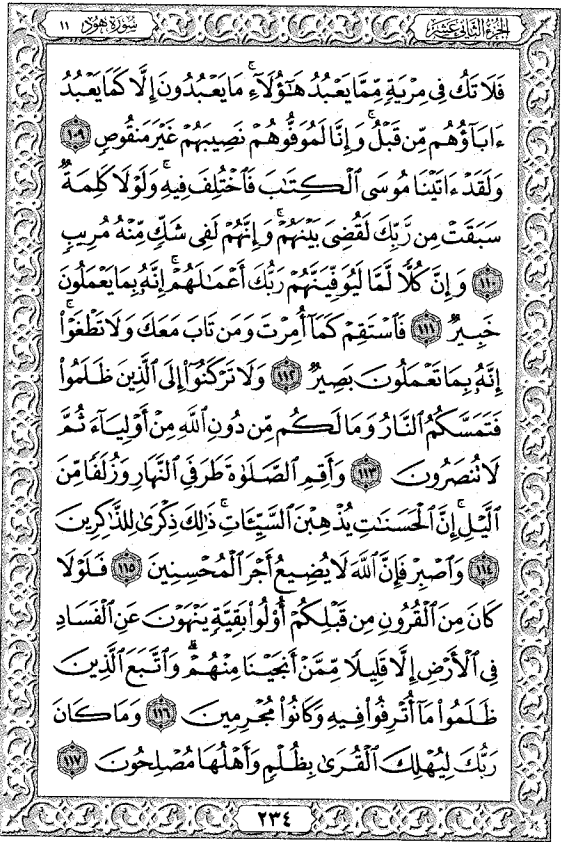 الجزء الثاني عشر سورة هود ١١
فَلَا تَكُ فِى مِرْيَةٍ مِّمَّا يَعْبُدُ هَٰٓؤُلَآءِ ۚ مَا يَعْبُدُونَ إِلَّا كَمَا يَعْبُدُ
ءَابَآؤُهُم مِّن قَبْلُ ۚ وَإِنَّا لَمُوَفُّوهُمْ نَصِيبَهُمْ غَيْرَ مَنقُوصٍ ١٠٩
وَلَقَدْ ءَاتَيْنَا مُوسَى ٱلْكِتَٰبَ فَٱخْتُلِفَ فِيهِ ۚ وَلَوْلَا كَلِمَةٌ
سَبَقَتْ مِن رَّبِّكَ لَقُضِىَ بَيْنَهُمْ ۚ وَإِنَّهُمْ لَفِى شَكٍّ مِّنْهُ مُرِيبٍ
١١٠ وَإِنَّ كُلًّا لَّمَّا لَيُوَفِّيَنَّهُمْ رَبُّكَ أَعْمَٰلَهُمْ ۚ إِنَّهُۥ بِمَا يَعْمَلُونَ
خَبِيرٌ ١١١ فَٱسْتَقِمْ كَمَآ أُمِرْتَ وَمَن تَابَ مَعَكَ وَلَا تَطْغَوْا۟ ۚ
إِنَّهُۥ بِمَا تَعْمَلُونَ بَصِيرٌ ١١٢ وَلَا تَرْكَنُوٓا۟ إِلَى ٱلَّذِينَ ظَلَمُوا۟
فَتَمَسَّكُمُ ٱلنَّارُ وَمَا لَكُم مِّن دُونِ ٱللَّهِ مِنْ أَوْلِيَآءَ ثُمَّ
لَا تُنصَرُونَ ١١٣ وَأَقِمِ ٱلصَّلَوٰةَ طَرَفَىِ ٱلنَّهَارِ وَزُلَفًا مِّنَ
ٱلَّيْلِ ۚ إِنَّ ٱلْحَسَنَٰتِ يُذْهِبْنَ ٱلسَّيِّـَٔاتِ ۚ ذَٰلِكَ ذِكْرَىٰ لِلذَّٰكِرِينَ
١١٤ وَٱصْبِرْ فَإِنَّ ٱللَّهَ لَا يُضِيعُ أَجْرَ ٱلْمُحْسِنِينَ ١١٥ فَلَوْلَا
كَانَ مِنَ ٱلْقُرُونِ مِن قَبْلِكُمْ أُو۟لُوا۟ بَقِيَّةٍ يَنْهَوْنَ عَنِ ٱلْفَسَادِ
فِى ٱلْأَرْضِ إِلَّا قَلِيلًا مِّمَّنْ أَنجَيْنَا مِنْهُمْ ۗ وَٱتَّبَعَ ٱلَّذِينَ
ظَلَمُوا۟ مَآ أُتْرِفُوا۟ فِيهِ وَكَانُوا۟ مُجْرِمِينَ ١١٦ وَمَا كَانَ
رَبُّكَ لِيُهْلِكَ ٱلْقُرَىٰ بِظُلْمٍ وَأَهْلُهَا مُصْلِحُونَ ١١٧
٢٣٤